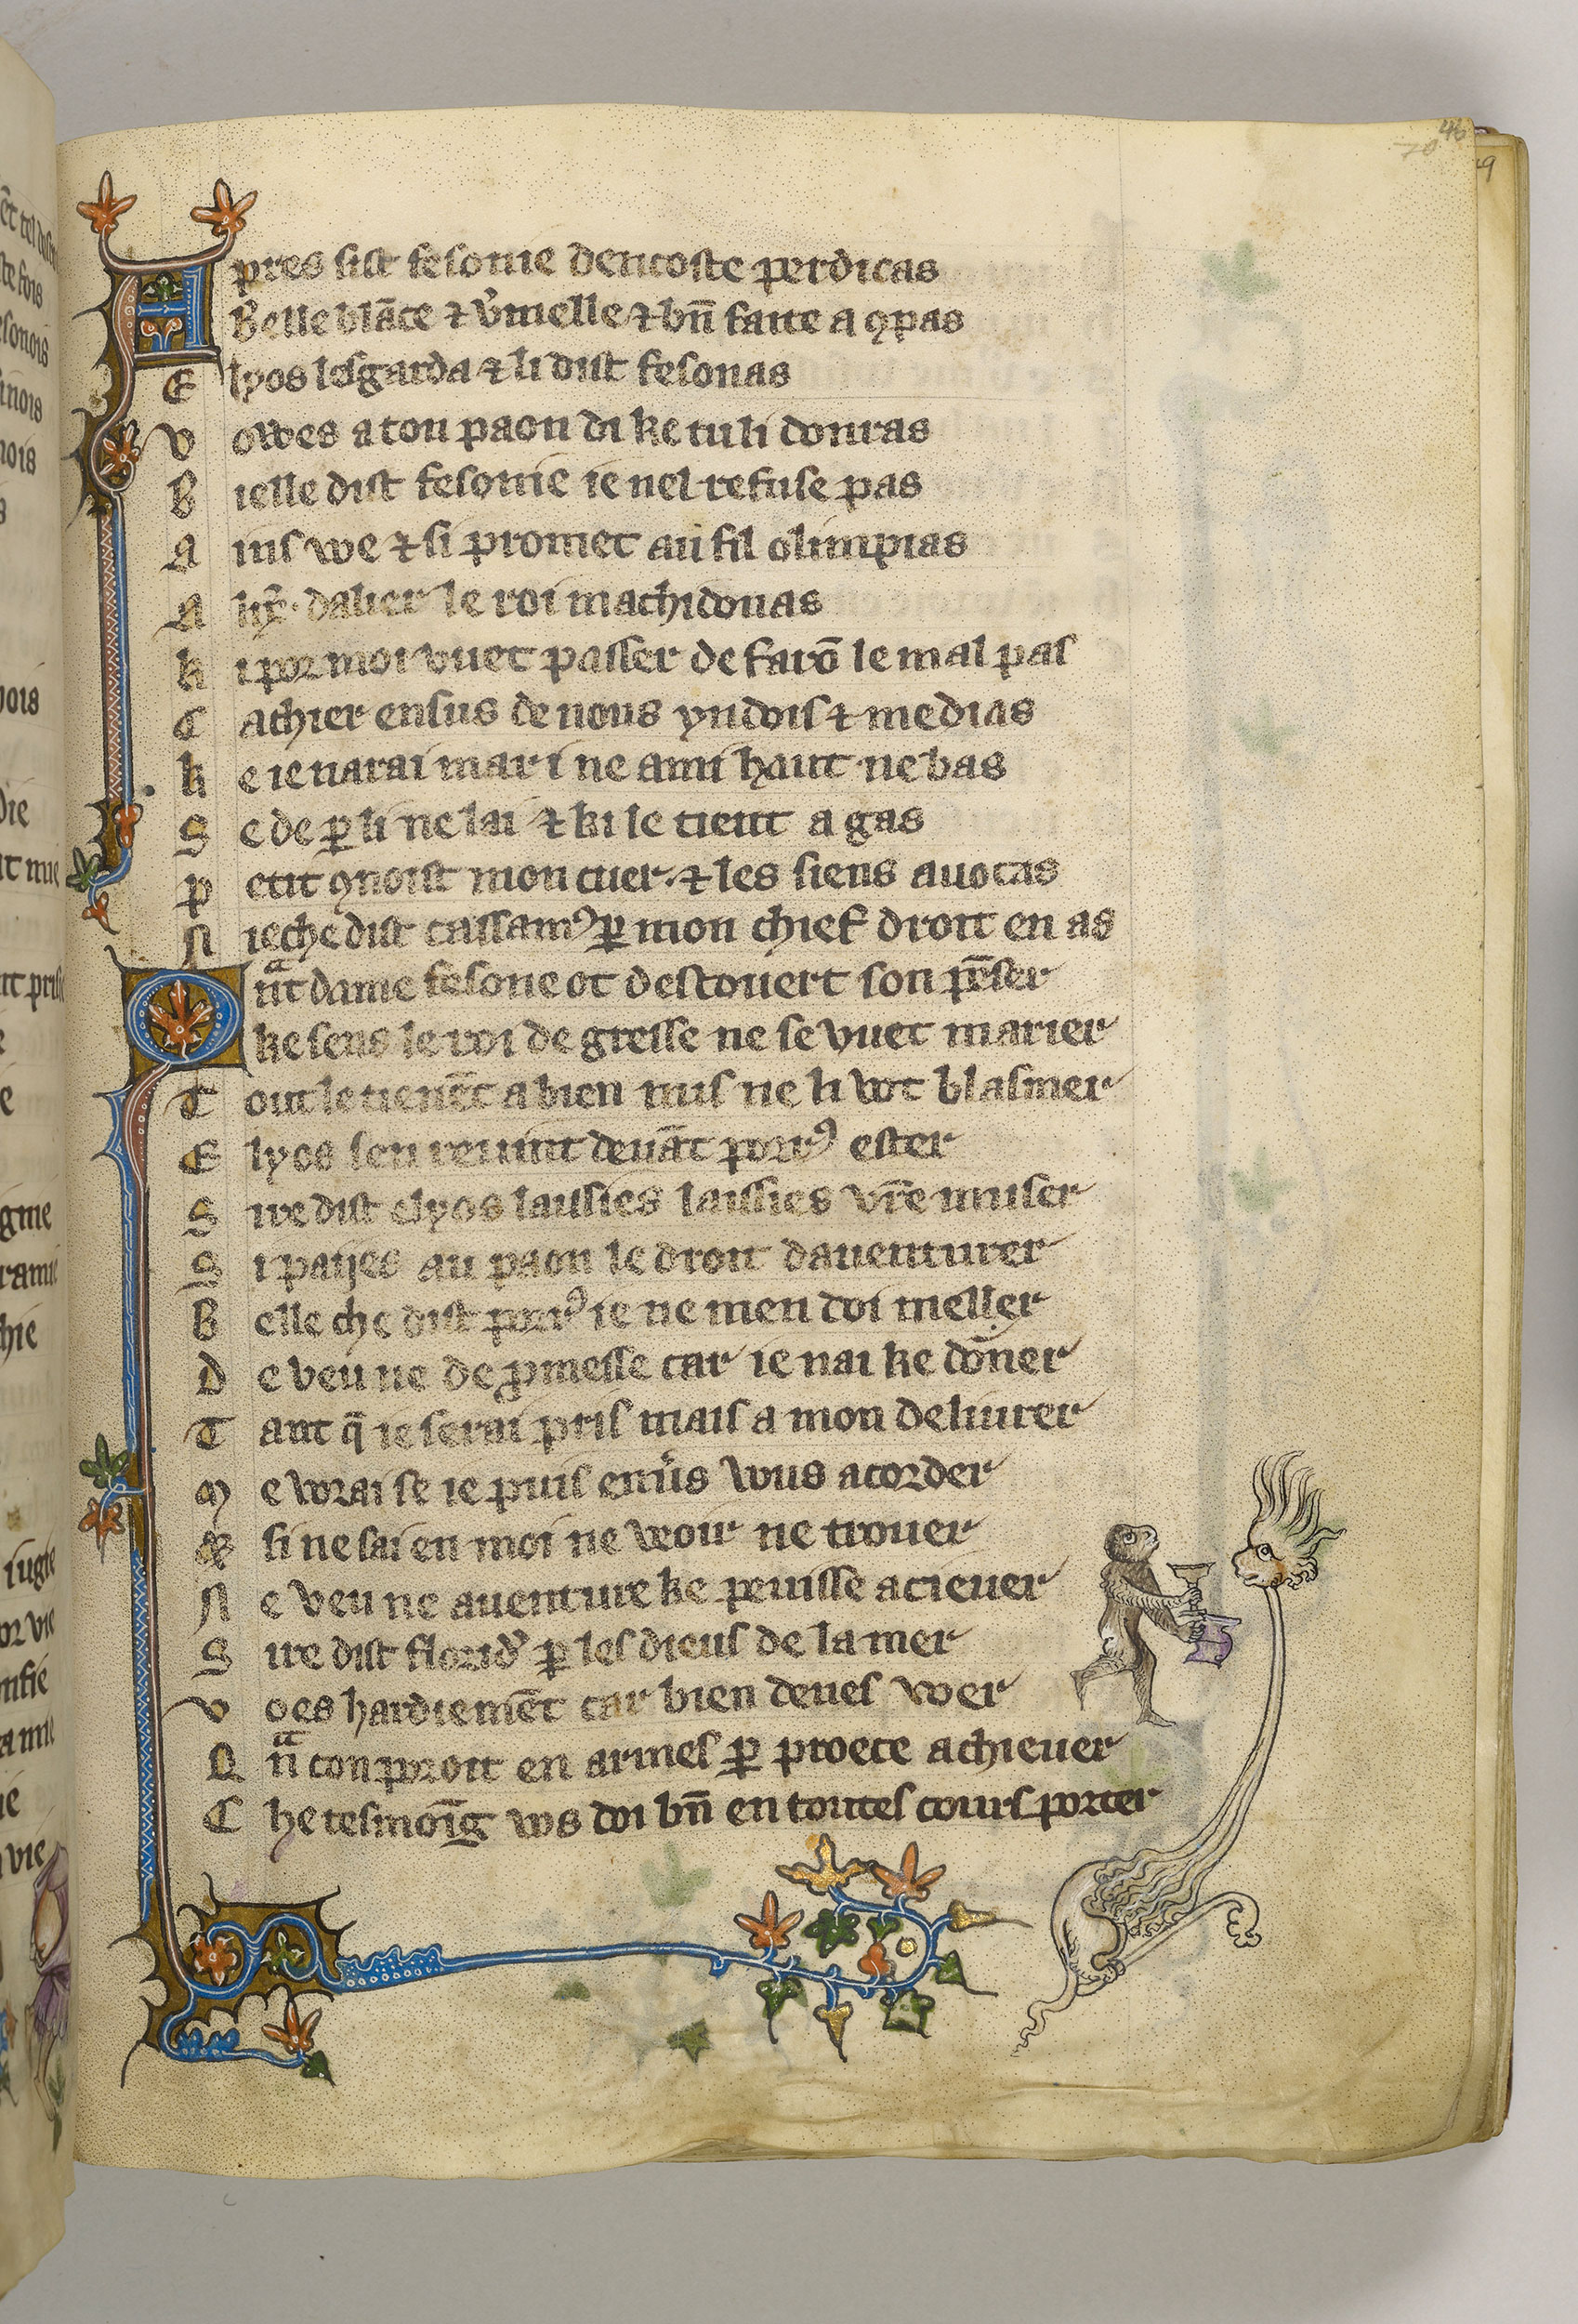 46
70
Apres sist fesonie dencoste perdicas
Belle blāce ⁊ v̾meille ⁊ bn̄ faite a ꝯpas
Elyos lesgarda ⁊ li dist fesonas
Vowes a tou paon di ke tu li donras
Bielle dist fesonie ie nel refuse pas
Ains we ⁊ si promet au fil olimpias
Alix̾. dalier le roi machidonas
ki por moi vuet passer de farō le mal pas
Cachier ensus de nous yndois ⁊ medias
ke ie narai mari ne ami haut ne bas
Se de ꝑ li ne lai ⁊ ki le tient a gas
petit ꝯnoist mon cuer ⁊ les siens auocas
Nieche dist cassamꝰ ꝑ mon chief droit en as
Qͣnt dame fesone ot descouert son pēser
ke sens le roi de gresse ne se vuet marier
Tout le tienēt a bien nuls ne li vot blasmer
Elyos sen reuint deuāt porrꝰ ester
Sire dist elyos laissies laissies vr̄e muser
Si paijes au paon le droit dauenturer
Belle che dist porrꝰ ie ne men doi meller
De veu ne de ꝓmesse car ie nai ke dōner
Tant q̄ ie serai pris mais a mon deliurer
Me vorai se ie puis enu̾s vous acorder
⁊ si ne sai en moi ne veoir ne trouer
Ne veu ne auenture ke peuisse acieuer
Sire dist florid̾ ꝑ les dieus de la mer
Voes hardiemēt car bien deues voer
Qͣn con poroit en armes ꝑ proece achieuer
Che tesmoīg vos doi bn̄ en toutes cours porter